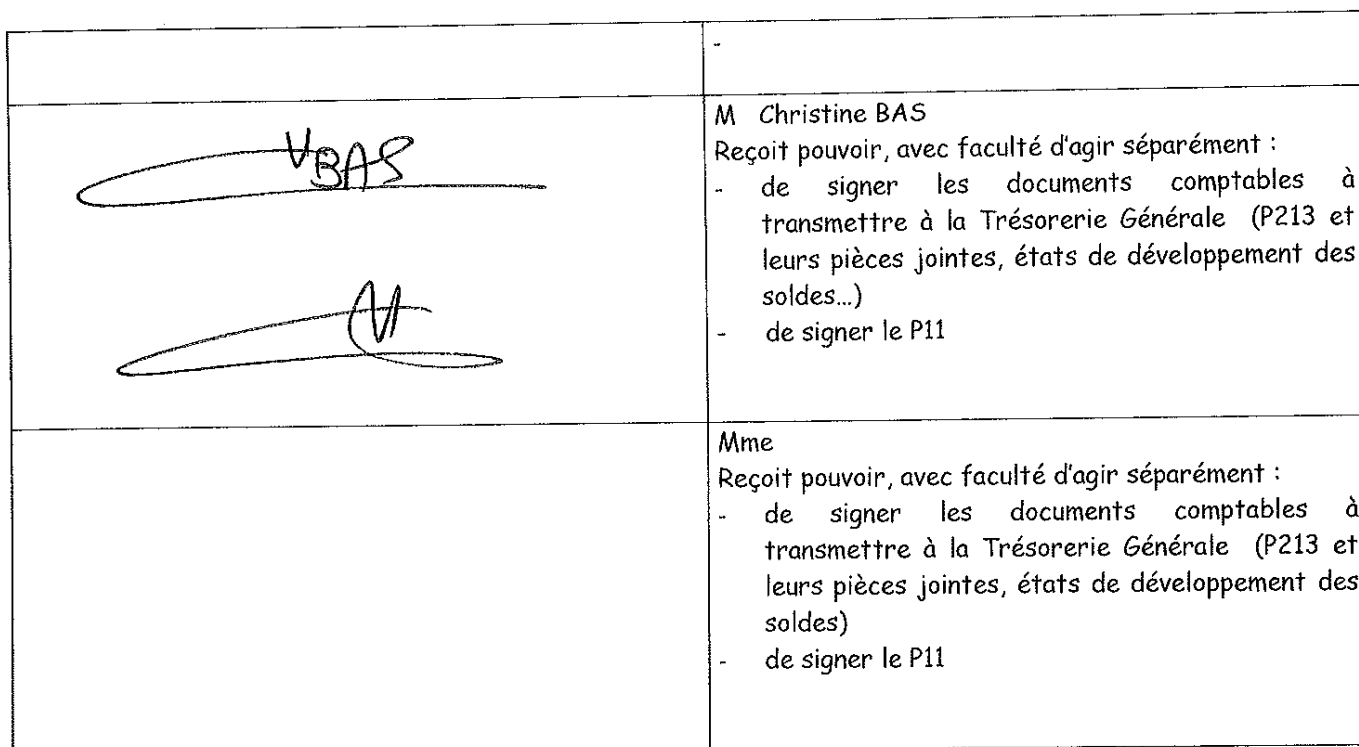 -
M Christine BAS
Reçoit pouvoir, avec faculté d'agir séparément :
- de signer les documents comptables à
transmettre à la Trésorerie Générale (P213 et
leurs pièces jointes, états de développement des
soldes...)
- de signer le P11
V BAS
Mme
Reçoit pouvoir, avec faculté d'agir séparément :
- de signer les documents comptables à
transmettre à la Trésorerie Générale (P213 et
leurs pièces jointes, états de développement des
soldes)
- de signer le P11